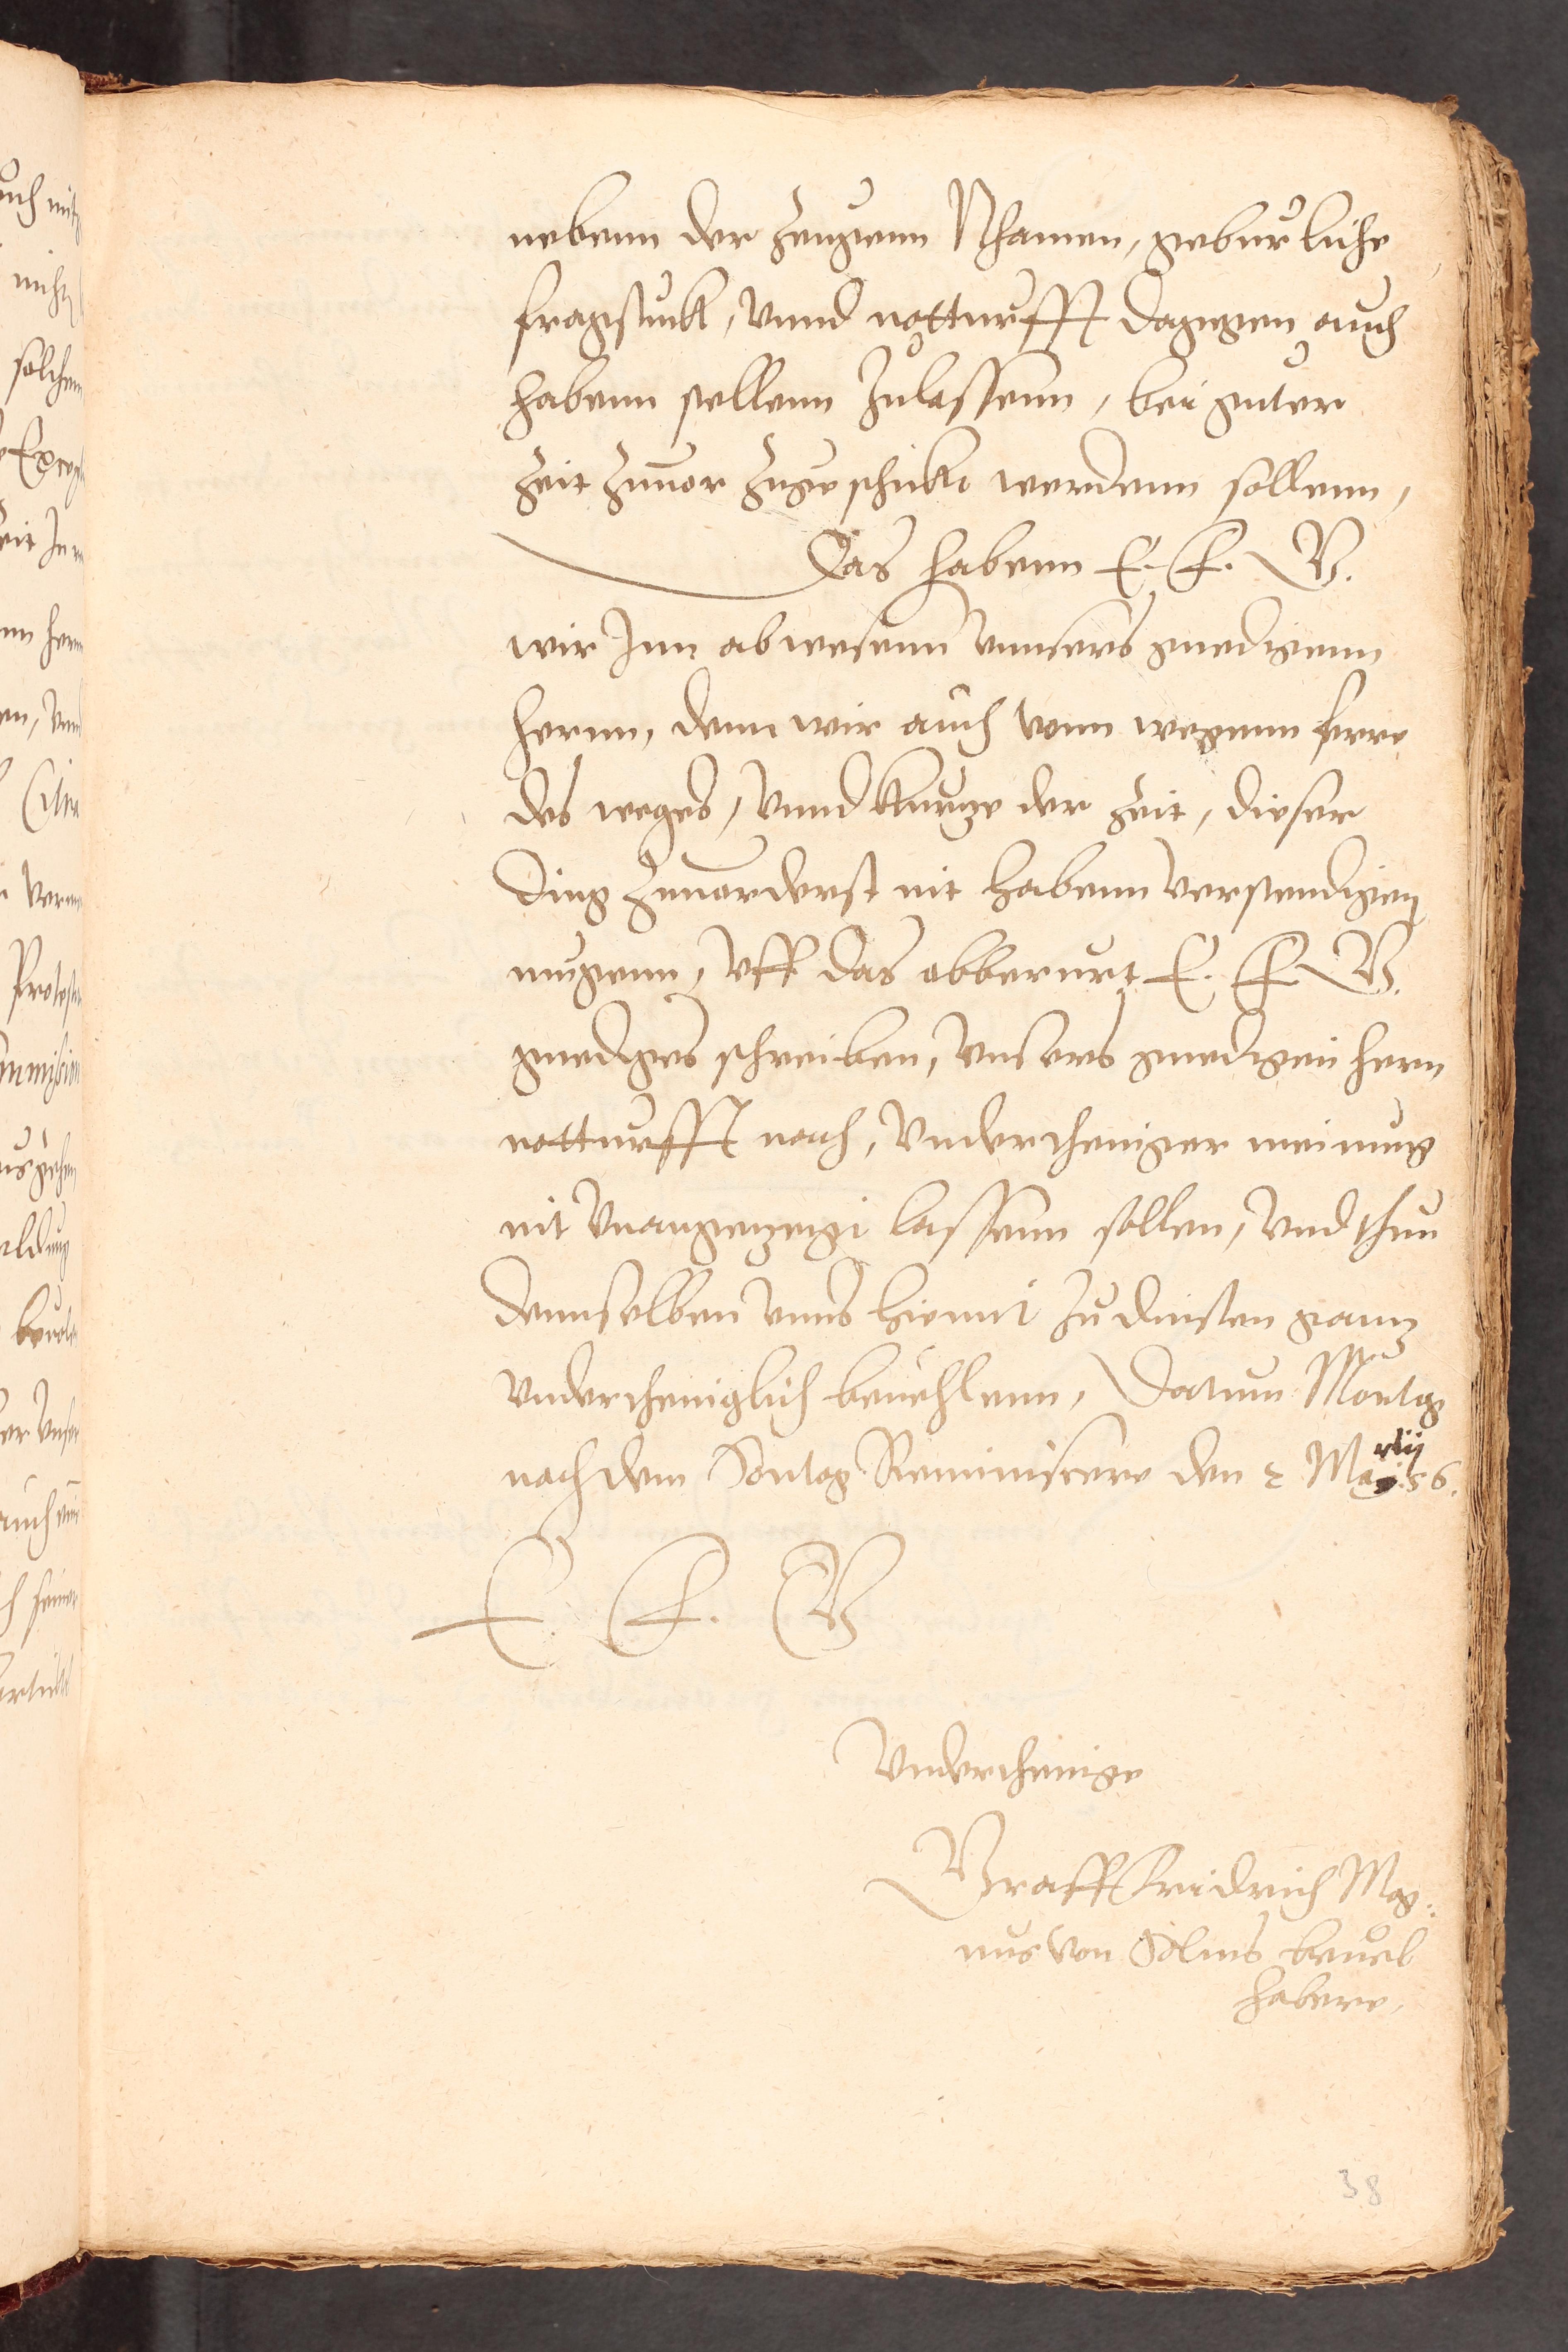 nebenn der Zeugenn Nhamen, geburliche
fragstuckt, Vnnd notturfft dagegen auch
habenn stellenn Zulassenn, bei guter
Zeit Zuuor Zugeschickt werdenn sollenn,
Das habenn E. F. G.
wir Inn abwesenn Vnnsers gnedigenn
herrnn, denn wir auch vonn wegenn ferre
des weges, Vnnd kurtze der Zeit, dieser
Ding Zuuorderst nit habenn verstendigen
mugenn, Vff das abberurt E. F. G.
gnediges schreiben, Vnsers gnedigen hern
notturfft nach, Vndertheniger meinung
nit Vnangezeigt lassenn sollen, Vnd thun
dennselben vnns hiemit Zu dinsten gantz
Vndertheniglich beuehlenn, Datum Montag
nach dem Sontag Reminiscere den 2 Martij 56.
E. F. G
Vnderthenige
Graff Fridrich Mag:
nus von Solms beuel
habere,
38
auch mit
nicht
solchen
Zeit In